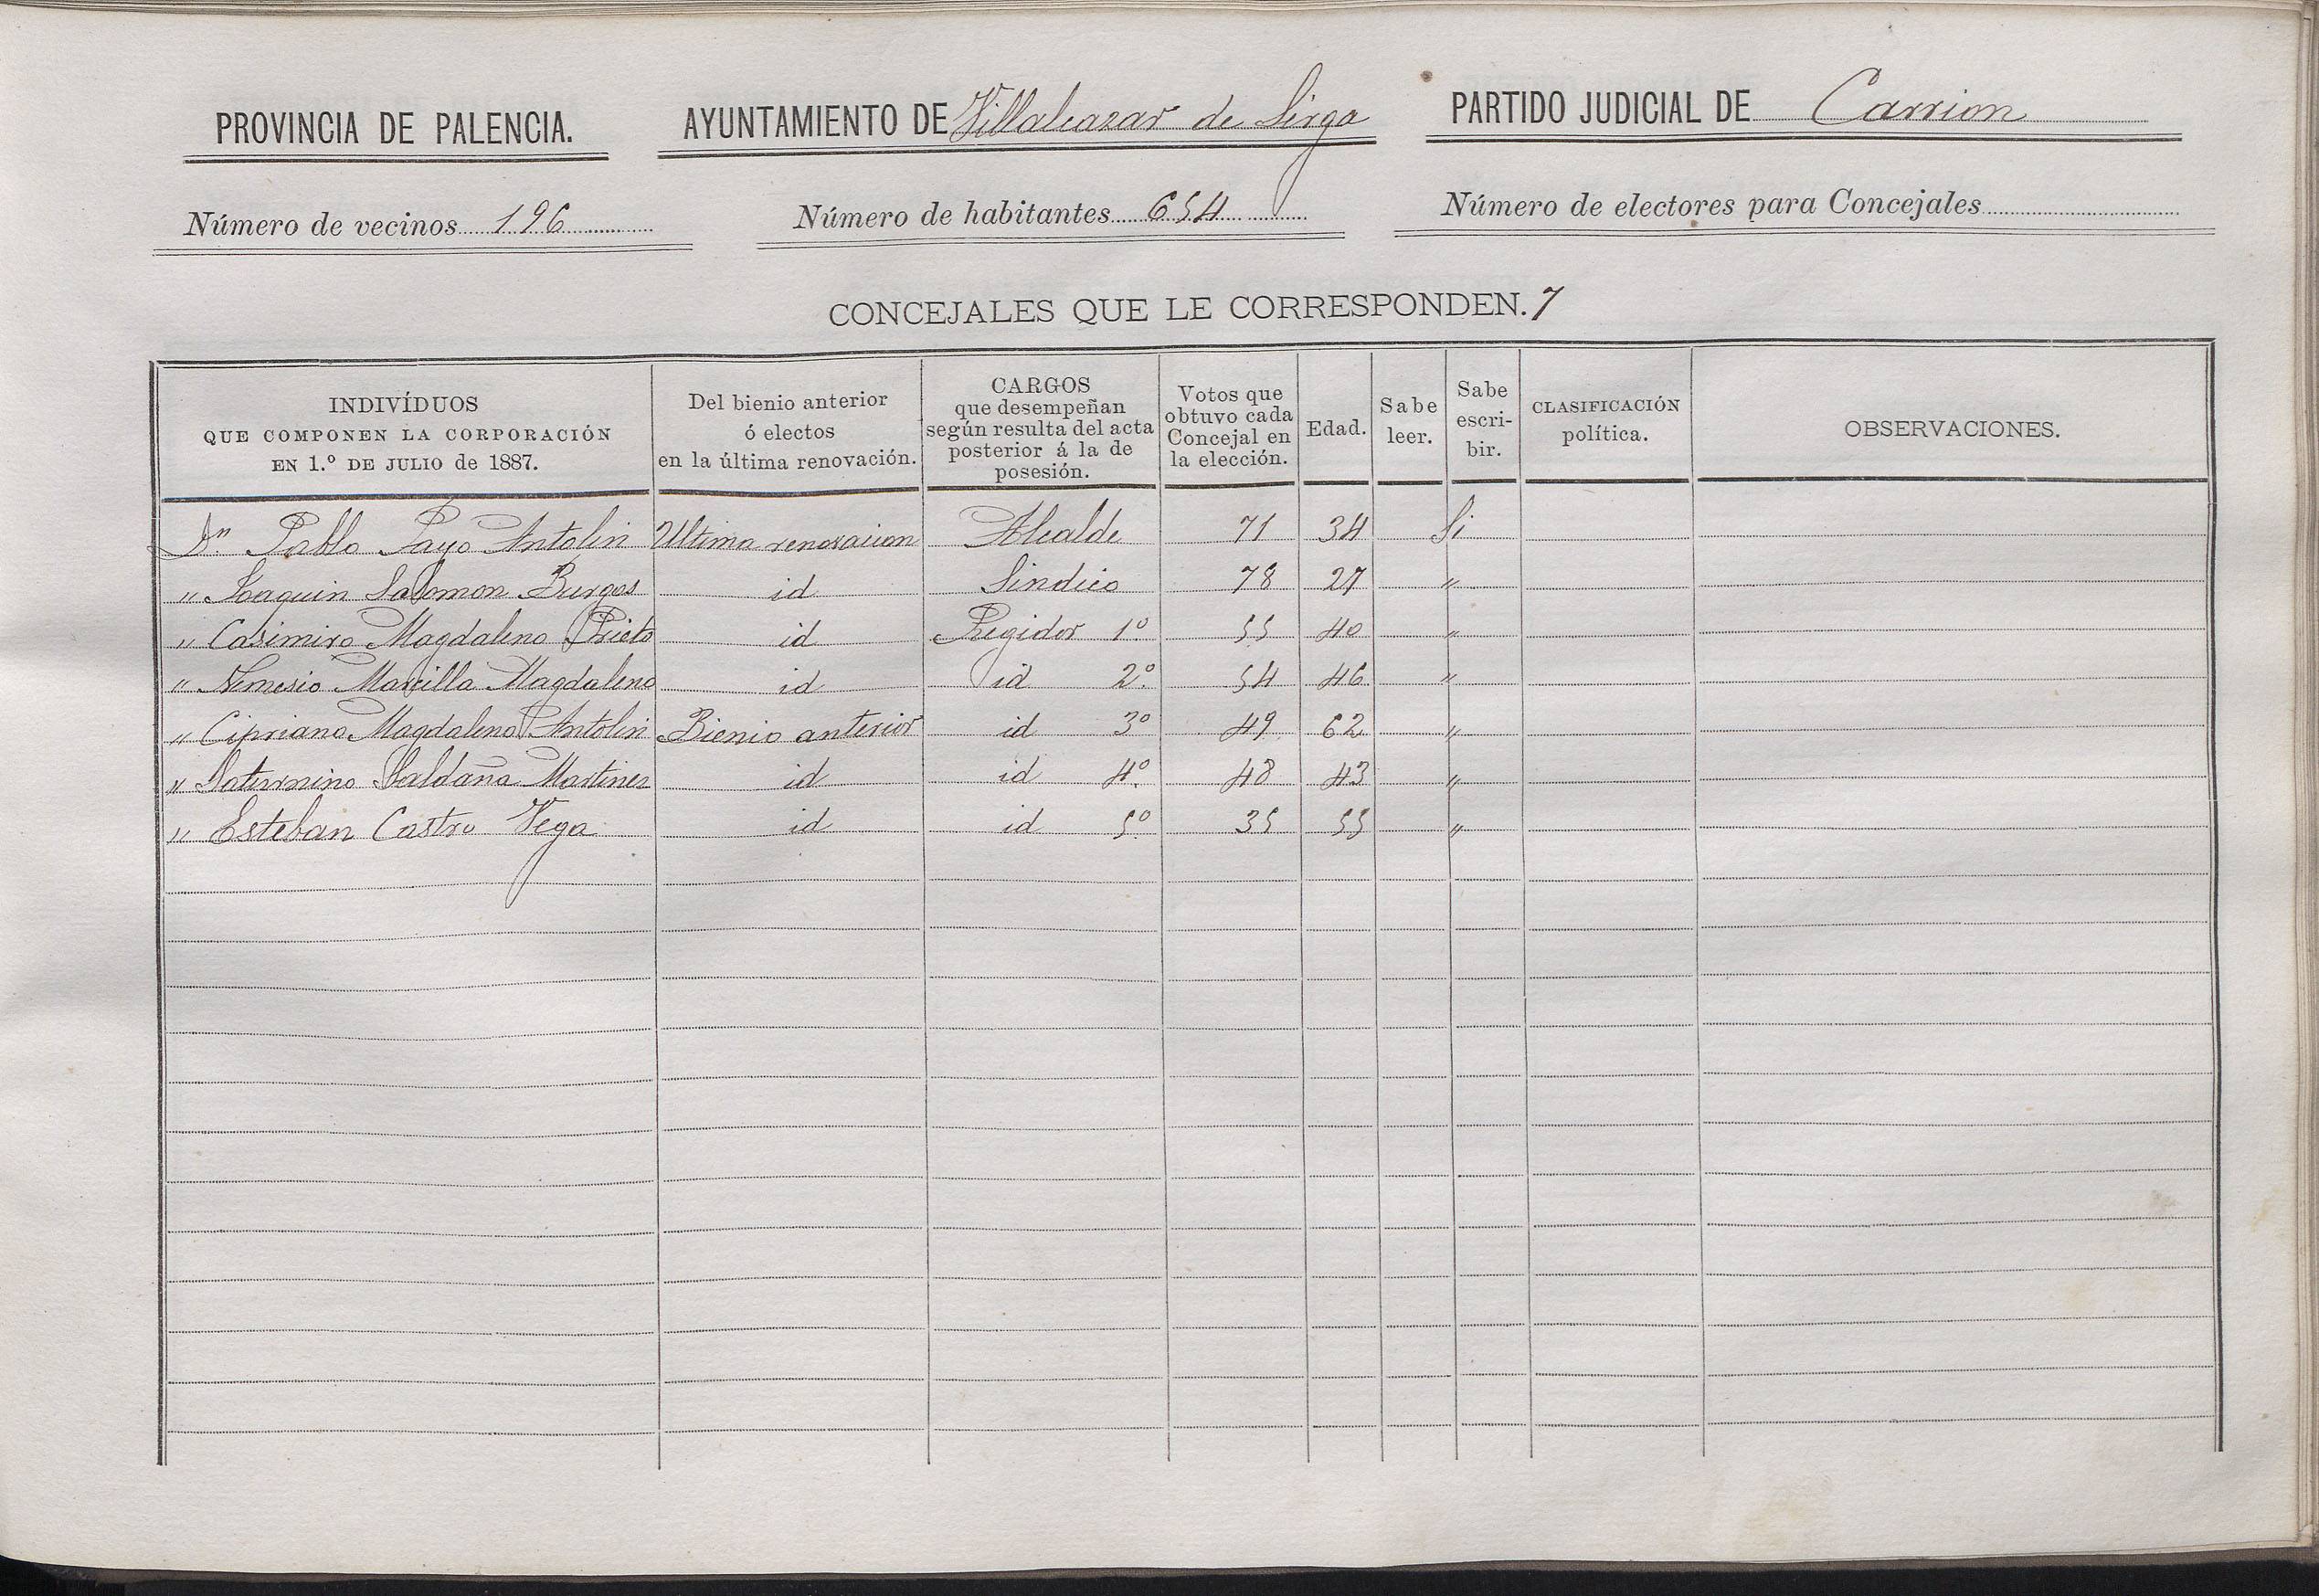 PROVINCIA DE PALENCIA. AYUNTAMIENTO DE Villalcazar de Sirga PARTIDO JUDICIAL DE Carrion
Número de vecinos 196 Número de habitantes 654 Número de electores para Concejales
CONCEJALES QUE LE CORRESPONDEN. 7
INDIVÍDUOS
QUE COMPONEN LA CORPORACIÓN
EN 1.º DE JULIO de 1887.
Del bienio anterior
ó electos
en la última renovación.
CARGOS
que desempeñan
según resulta del acta
posterior á la de
posesión.
Votos que
obtuvo cada
Concejal en
la elección.
Edad.
Sabe
leer.
Sabe
escri-
bir.
CLASIFICACIÓN
política.
OBSERVACIONES.
Dn. Pablo Payo Antolin Ultima renovacion Alcalde 71 34 Si
" Joaquin Salomon Burgos id Sindico 78 27 "
" Casimiro Magdaleno Prieto id Regidor 1º 55 40 "
" Nemesio Marcilla Magdaleno id id 2º. 54 46 "
" Cipriano Magdaleno Antolin Bienio anterior id 3º 49 62 "
" Saturnino Saldaña Martinez id id 4º. 48 43 "
" Esteban Castro Vega id id 5º 35 55 "